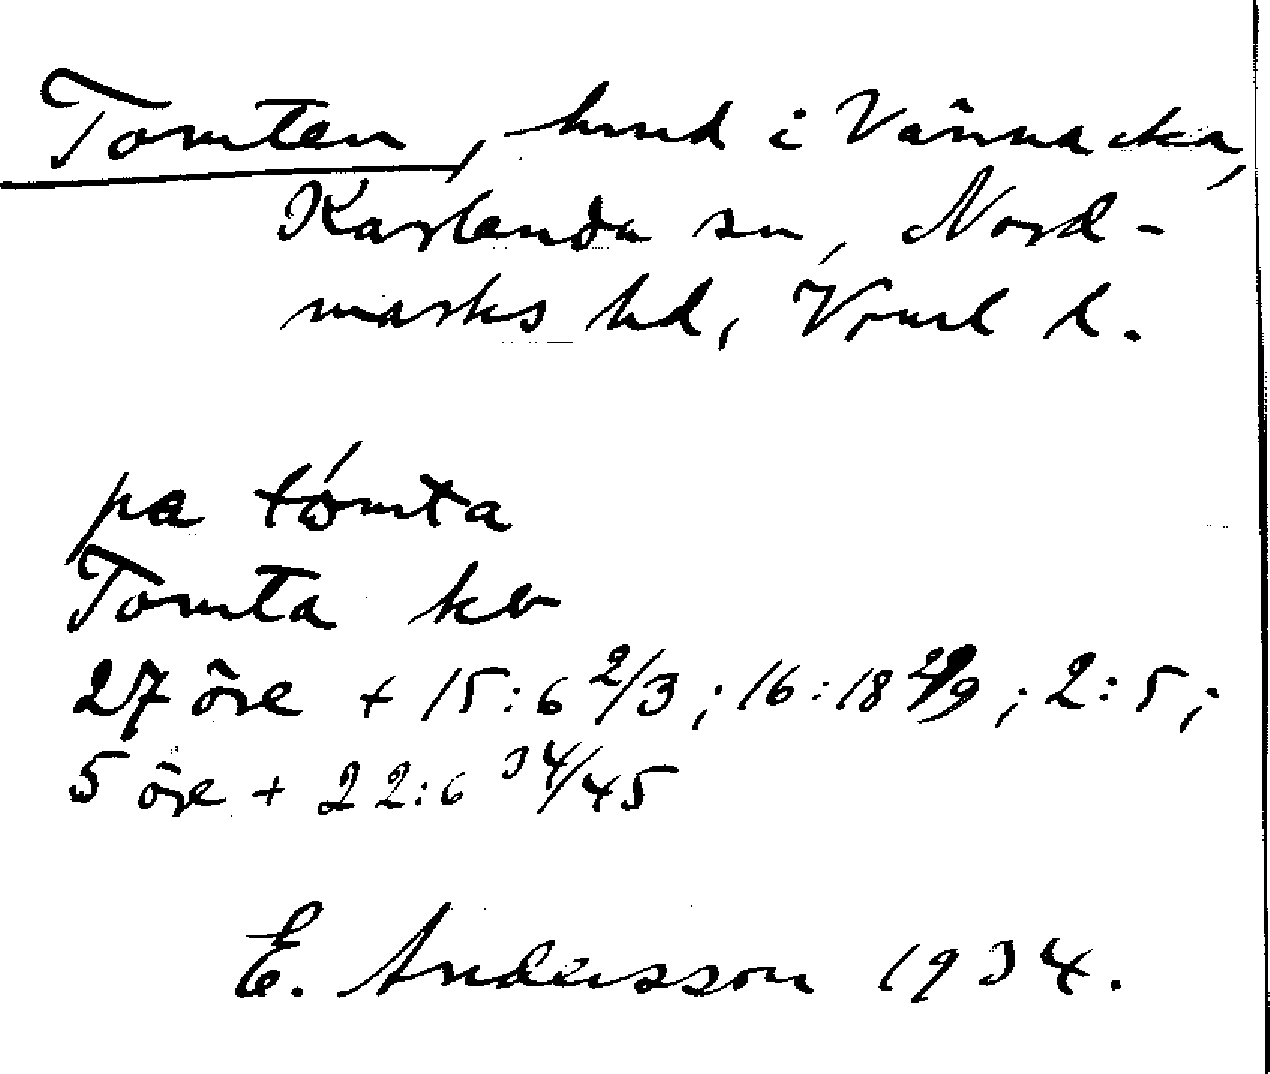 Tomten, hmd i Vännacka,
Karlanda sn, Nord-
marks hd, Vrml l.
pa tómta
Tomta kb
27 öre + 15:6 2/3; 16:18 2/9; 2:5;
5 öre + 22:6 34/45
E. Andersson 1934.